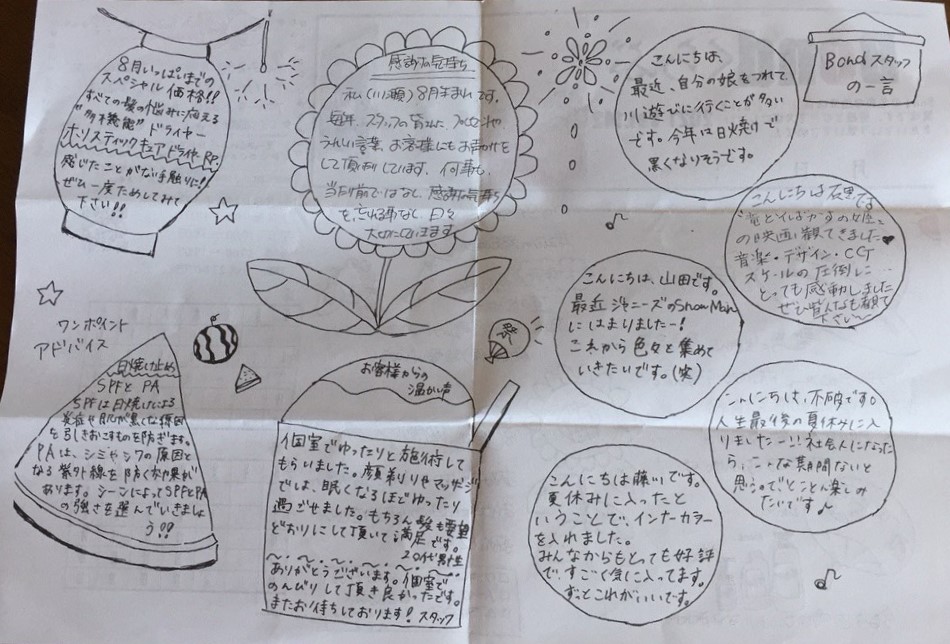 8月いっぱいまでの
スペシャル価格!!
すべての髪の悩みに応える
"多機能"ドライヤー
ホリスティックキュアドライヤーRP.
感じたことがない手触りに!
ぜひ一度ためしてみて
下さい!!
感謝な気持ち
私(川瀬)8月生まれです。
毎年、スタッフの皆さん、
うれしい言葉、お客様にもお声かけを
して頂いています。何事も、
当たり前ではなく、感謝な気持ち
を、忘れる事なく、日々
大切にしていきます。
Bondスタッフ
の一言
こんにちは、
最近、自分の娘をつれて
川遊びに行くことが多い
です。今年は日焼けで
黒くなりそうです。
こんにちは石黒です
"竜とそばかすの姫"
の映画観てきました♥
音楽・デザイン・CG
スケールの圧倒に…
とっても感動しました
ぜひ皆んなも観て
下さい〜
こんにちは、山田です。
最近ジャニーズのSnow Man
にはまりましたー!
これから色々と集めて
いきたいです。(笑)
祭
こんにちは、不破です。
人生最後の夏休みに入
りましたー!!社会人になった
ら、こんな期間ないと
思うのでとことん楽しみ
たいです♪
こんにちは藤川です。
夏休みに入ったと
いうことで、インナーカラー
を入れました。
みんなからもとっても好評
ですごく気に入ってます。
ずっとこれがいいです。
ワンポイント
アドバイス
日焼け止め
SPFとPA
SPFは日焼けによる
炎症や肌が黒くなる原因
を引きおこすものを防ぎます。
PAは、シミやシワの原因と
なる紫外線を防ぐ効果が
あります。シーンによってSPFとPA
の強さを選んでいきましょ
う!!
お客様からの
温かい声
個室でゆったりと施術して
もらいました。顔剃りやマッサージ
では、眠くなるほどゆったり
過ごせました。もちろん髪も要望
どおりにして頂いて満足です。
20代男性
ありがとうございます。個室で
のんびりして頂き良かったです。
またお待ちしております!スタッフ